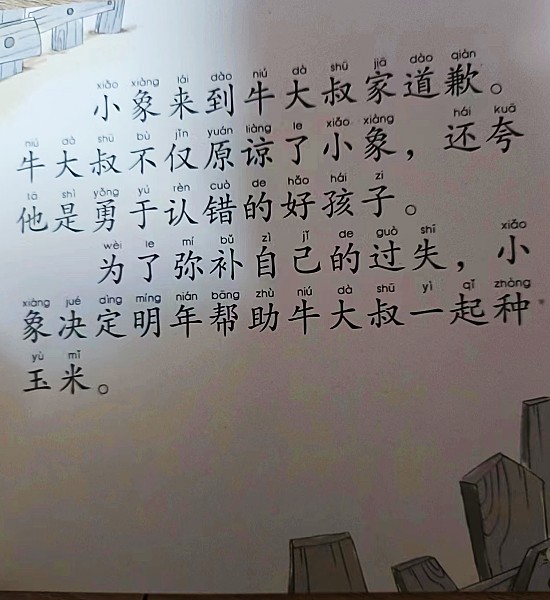 xiǎo xiàng lái dào niú dà shū jiā dào qiàn
小象来到牛大叔家道歉。
niú dà shū bù jǐn yuán liàng le xiǎo xiàng hái kuā
牛大叔不仅原谅了小象，还夸
tā shì yǒng yú rèn cuò de hǎo hái zi
他是勇于认错的好孩子。
wèi le mí bǔ zì jǐ de guò shī xiǎo
为了弥补自己的过失，小
xiàng jué dìng míng nián bāng zhù niú dà shū yì qǐ zhòng
象决定明年帮助牛大叔一起种
yù mǐ
玉米。